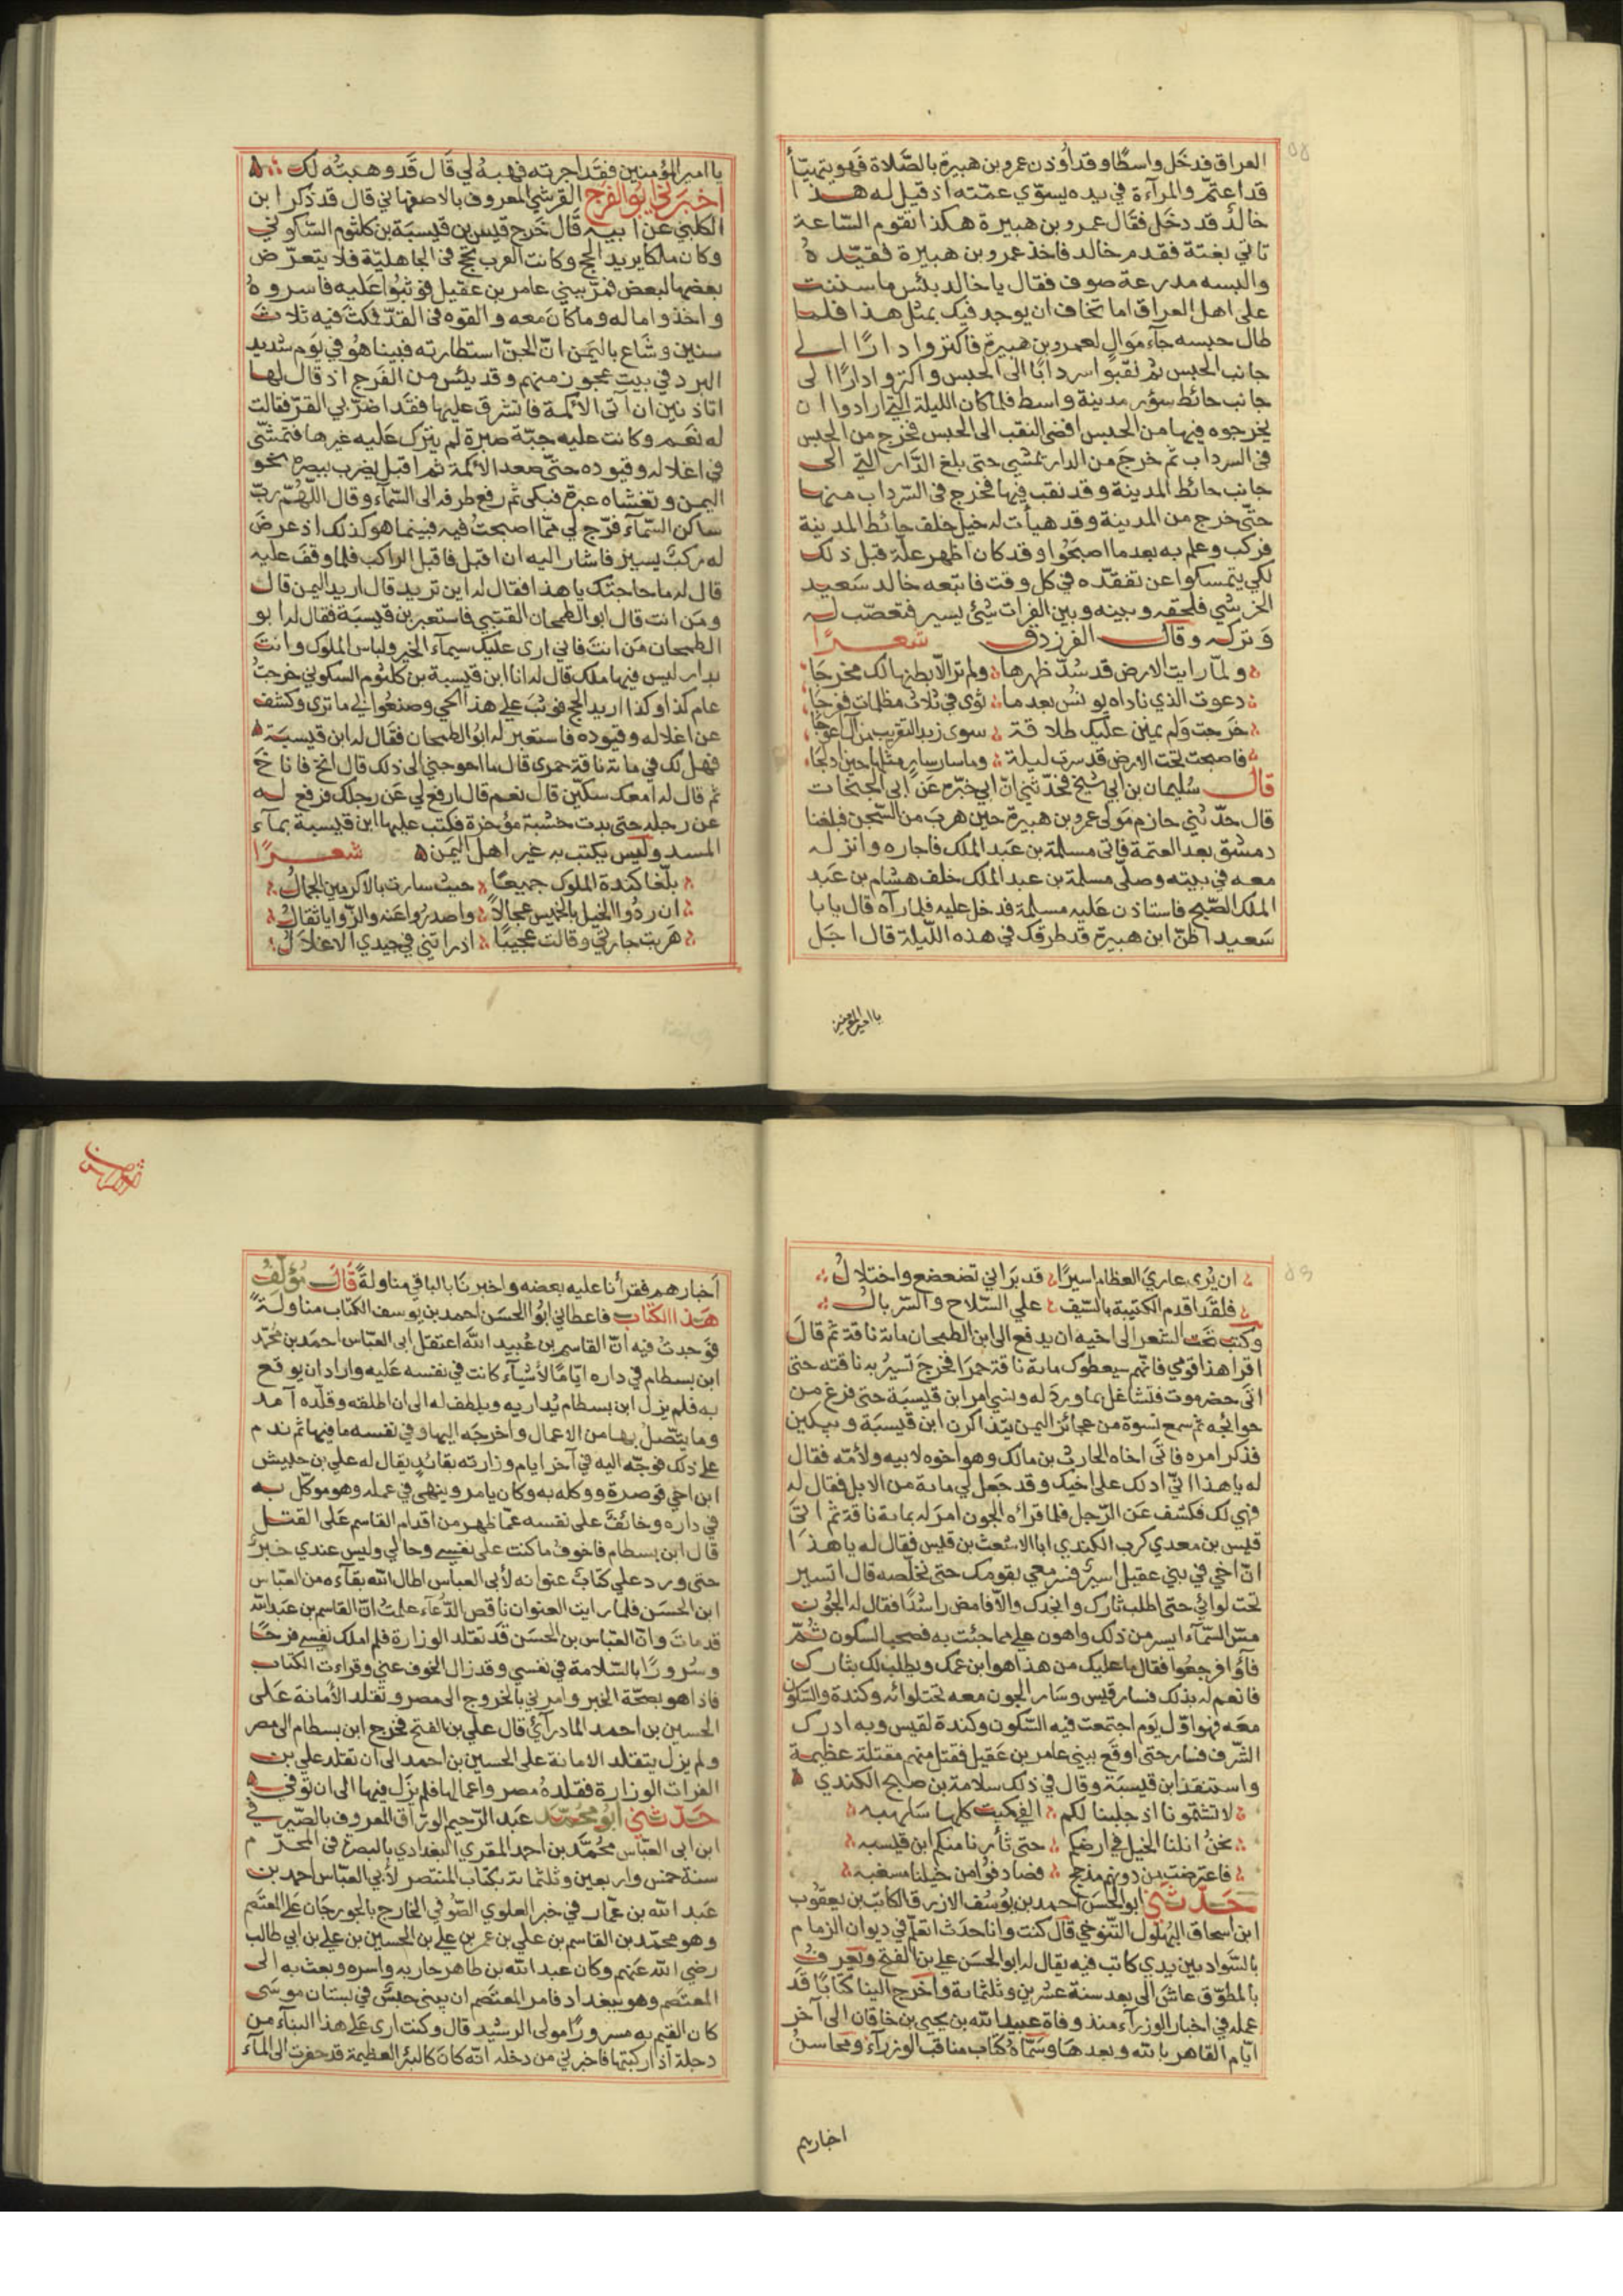 العراق فدخل واسطًا وقد أوذن عمرو بن هبيرة بالصّلاة فهو يتهيّأ
قد اعتمّ والمرآة في يده يسوّي عمّته اذ قيل له هذا
خالد قد دخل فقال عمرو بن هبيرة هكذا تقوم السّاعة
تاتي بغتة فقدم خالد فاخذ عمرو بن هبيرة فقيّده
والبسه مدرعة صوف فقال يا خالد بئس ما سننت
على اهل العراق اما تخاف ان يوجد فيك بمثل هذا فلما
طال حبسه جآء موال لعمرو بن هبيرة فاكتروا دارًا الى
جانب الحبس ثم نقبوا سردابًا الى الحبس واكتروا دارًا الى
جانب حائط سور مدينة واسط فلما كان الليلة التي ارادوا ان
يخرجوه فيها من الحبس افضى النقب الى الحبس فخرج من الحبس
في السرداب ثم خرج من الدار يمشي حتى بلغ الدّار التي الى
جانب حائط المدينة وقد نقب فيها فخرج في السّرداب منها
حتّى خرج من المدينة وقد هيأت له خيل خلف حائط المدينة
فركب وعلم به بعد ما اصبحوا وقد كان اظهر علّة قبل ذلك
لكي يتمسكوا عن تفقده في كل وقت فاتبعه خالد سعيد
الخرشي فلحقه وبينه وبين الفرات شئ يسير فتعصّب له
وتركه وقال الفرزدق شعرًا
ولمّا رايت الارض قد سُدّ ظهرها ولم تر الّا بطنها لك مخرجا
دعوت الذي ناداه يونس بعد ما ثوى في ثلاث مظلمات ففرجا
خرجت ولم يمنن عليك طلاقة سوى زبد التقريب من آل اعوجا
فاصبحت تحت الارض قد سرت ليلة وما سار سارٍ مثلها حين ادلجا
قال سُليمان بن ابي شيخ فحدّثني انّ ابي خبّره عن ابي الجنحات
قال حدّثني حازم مولى عمرو بن هبيرة حين هرب من السّجن فبلغنا
دمشق بعد العتمة فاتى مسلمة بن عبد الملك فاجاره وانزله
معه في بيته وصلّى مسلمة بن عبد الملك خلف هشام بن عبد
الملك الصّبح فاستاذن عليه مسلمة فدخل عليه فلما رآه قال يا با
سعيد اظنّ ابن هبيرة قد طرقك في هذه اللّيلة قال اجل
يا امير المؤمنين
يا امير المؤمنين فقد اجرته فهبه لي قال قد وهبته لك
اخبرني ابو الفرج القرشي المعروف بالاصفهاني قال قد ذكر ابن
الكلبي عن ابيه قال خرج قيس بن قيسبة بن كلثوم السّكوني
وكان ملكا يريد الحج وكانت العرب تحج في الجاهليّة فلا يتعرّض
بعضها لبعض فمرّ ببني عامر بن عقيل فوثبوا عليه فاسروه
واخذوا ماله وما كان معه والقوه في القدّ فمكث فيه ثلاث
سنين وشاع باليمن انّ الجنّ استطارته فبينا هو في يوم شديد
البرد في بيت عجوز منهم وقد يئس من الفرج اذ قال لها
اتاذنين ان آتى الاكمة فاتشرق عليها فقد اضرّ بي القرّ فقالت
له نعم وكانت عليه جبّة صبرة لم يترك عليه غيرها فتمشّى
في اغلاله وقيوده حتّى صعد الاكمة ثم اقبل يضرب ببصره نحو
اليمن وتغشاه عبرة فبكى ثم رفع طرفه الى السّمآء وقال اللّهمّ ربّ
ساكن السّمآء فرّج لي ممّا اصبحت فيه فبينما هو كذلك اذ عرض
له ركب يسير فاشار اليه ان اقبل فاقبل الراكب فلما وقف عليه
قال له ما حاجتك يا هذا فقال له اين تريد قال اريد اليمن قال
ومن انت قال ابو الطمحان القتبي فاستعبر بن قيسبة فقال له ابو
الطمحان من انت فاني ارى عليك سيمآء الخير ولباس الملوك وانت
بدار ليس فيها ملك قال له انا ابن قيسبة بن كلثوم السكوني خرجت
عام كذا وكذا اريد الحج فوثب علي هذا الحي وصنعوا لي ما ترى وكشف
عن اغلاله وقيوده فاستعبر له ابو الطمحان فقال له ابن قيسبة
فهل لك في مائة ناقة حمرى قال ما احوجني الى ذلك قال انخ فاناخ
ثم قال له امعك سكّين قال نعم قال ارفع لي عن رجلك فرفع له
عن رجله حتى بدت خشبة مؤخرة فكتب عليها ابن قيسبة بمآء
المسد وليس يكتب به غير اهل اليمن شعرًا
بلّغا كندة الملوك جميعًا حيث سارت بالاكرمين الجمال
ان ردّوا الخيل بالخميس عجالًا واصدروا عنه والرّوايا ثقال
هربت جارتي وقالت عجيبًا اذ راتني في جيدي الاغلال
ان يُرى عاري العظام اسيرًا قد براني تضعضع واختلال
فلقد اقدم الكتيبة بالسّيف علي السّلاح والسّربال
وكتب تحت الشعر الى اخيه ان يدفع الى ابن الطمحان مائة ناقة ثم قال
اقرا هذا قومي فانّهم سيعطوك مائة ناقة حمرا فخرج تسير به ناقته حتى
اتى حضرموت فتشاغل بما ورد له ونسي امر ابن قيسبة حتى فرغ من
حوائجه ثم سمع نسوة من عجائز اليمن يتذاكرن ابن قيسبة ويبكين
فذكر امره فاتى اخاه الحارث بن مالك وهو اخوه لابيه ولامّه فقال
له يا هذا انّي ادلك على اخيك وقد جعل لي مائة من الابل فقال له
فهي لك فكشف عن الرّحل فلما قراه الجون امر له بمائة ناقة ثم اتى
قيس بن معدي كرب الكندي ابا الاشعث بن قيس فقال له يا هذا
انّ اخي في بني عقيل اسير فسر معي بقومك حتى نخلّصه قال اتسير
تحت لوائي حتى اطلب ثارك وانجدك والّا فامض راشدًا فقال له الجون
مسّ السّمآء ايسر من ذلك واهون علي مما جئت به فصحب السكون ثم
فآوا فرجعوا فقال ما عليك من هذا هو ابن عمك ويطلب لك بثارك
فانعم له بذلك فسار قيس وسار الجون معه تحت لوائه وكندة والسّكون
معه فهو اوّل يوم اجتمعت فيه السّكون وكندة لقيس وبه ادرك
الشّرف فسار حتى اوقع ببني عامر بن عقيل فقتل منهم مقتلة عظيمة
واستنقذ ابن قيسبة وقال في ذلك سلامة بن صبح الكندي
لا تشتمونا اذ جلبنا لكم الفي كميت كلها سلهبه
نحن انلنا الخيل في ارضكم حتى ثأرنا منكم ابن قيسبه
فاعترضت من دونهم مذحج فصادفوا من خيلنا مسغبه
حدّثني ابو الحسن احمد بن يوسف الازرق الكاتب بن يعقوب
ابن اسحاق البهلول التّنوخي قال كنت وانا حدث اتعلّم في ديوان الزمام
بالسّواد بين يدي كاتب فيه يقال له ابو الحسن علي بن الفتح ويعرف
بالمطوّق عاش الى بعد سنة عشرين وثلثمائة واخرج الينا كتابًا قد
عمله في اخبار الوزرآء منذ وفاة عبيد الله بن يحيى بن خاقان الى آخر
ايّام القاهر بالله وبعدها وسمّاه كتاب مناقب الوزرآء ومحاسن
اخبارهم
اخبارهم فقرأنا عليه بعضه واخبرنا بالباقي مناولةً قال مؤلّف
هذا الكتاب فاعطاني ابو الحسن احمد بن يوسف الكتاب مناولةً
فوجدت فيه انّ القاسم بن عبيد الله اعتقل ابي العبّاس احمد بن محمّد
ابن بسطام في داره ايّامًا لأشيآء كانت في نفسه عليه واراد ان يوقع
به فلم يزل ابن بسطام يُداريه ويلطف له الى ان اطلقه وقلّده آمد
وما يتّصل بها من الاعمال واخرجه اليها وفي نفسه ما فيها ثم ندم
على ذلك فوجّه اليه في آخر ايام وزارته بقائد يقال له علي بن حبيش
ابن اخي قوصرة ووكله به وكان يامر وينهي في عمله وهو موكّل به
في داره وخائف على نفسه عمّا ظهر من اقدام القاسم على القتل
قال ابن بسطام فاخوف ما كنت على نفسي وحالي وليس عندي خبر
حتى ورد علي كتاب عنوانه لأبي العباس اطال الله بقآءه من العبّاس
ابن الحسن فلما رايت العنوان ناقص الدّعآء علمت انّ القاسم بن عبد الله
قد مات وانّ العبّاس بن الحسن قد تقلد الوزارة فلم املك نفسي فرحًا
وسُرورًا بالسّلامة في نفسي وقد زال الخوف عني وقراءت الكتاب
فاذا هو بصحّة الخبر وامرني بالخروج الى مصر وتقلد الأمانة على
الحسين بن احمد المادرآئي قال علي بن الفتح فخرج ابن بسطام الى مصر
ولم يزل يتقلد الامانة على الحسين بن احمد الى ان تقلد علي بن
الفرات الوزارة فقلده مصر واعمالها فلم يزل فيها الى ان توفي
حدّثني ابو محمّد عبد الرّحيم الورّاق المعروف بالصّيرفي
ابن ابى العبّاس محمّد بن احمد المقري البغدادي بالبصرة في المحرّم
سنة خمس واربعين وثلثمائة بكتاب المنتصر لأبي العبّاس احمد بن
عبد الله بن عمّار في خبر العلوي الصّوفي الخارج بالجورجان على المعتصم
وهو محمّد بن القاسم بن علي بن عمر بن علي بن الحسين بن علي بن ابي طالب
رضي الله عنهم وكان عبد الله بن طاهر حاربه واسره وبعث به الى
المعتصم وهو ببغداد فامر المعتصم ان يبنى حبس في بستان موسى
كان القيم به مسرورًا مولى الرشيد قال وكنت ارى على هذا البناء من
دجلة اذا ركبتها فاخبرني من دخله انّه كان كالبئر العظيمة قد حفرت الى المآء